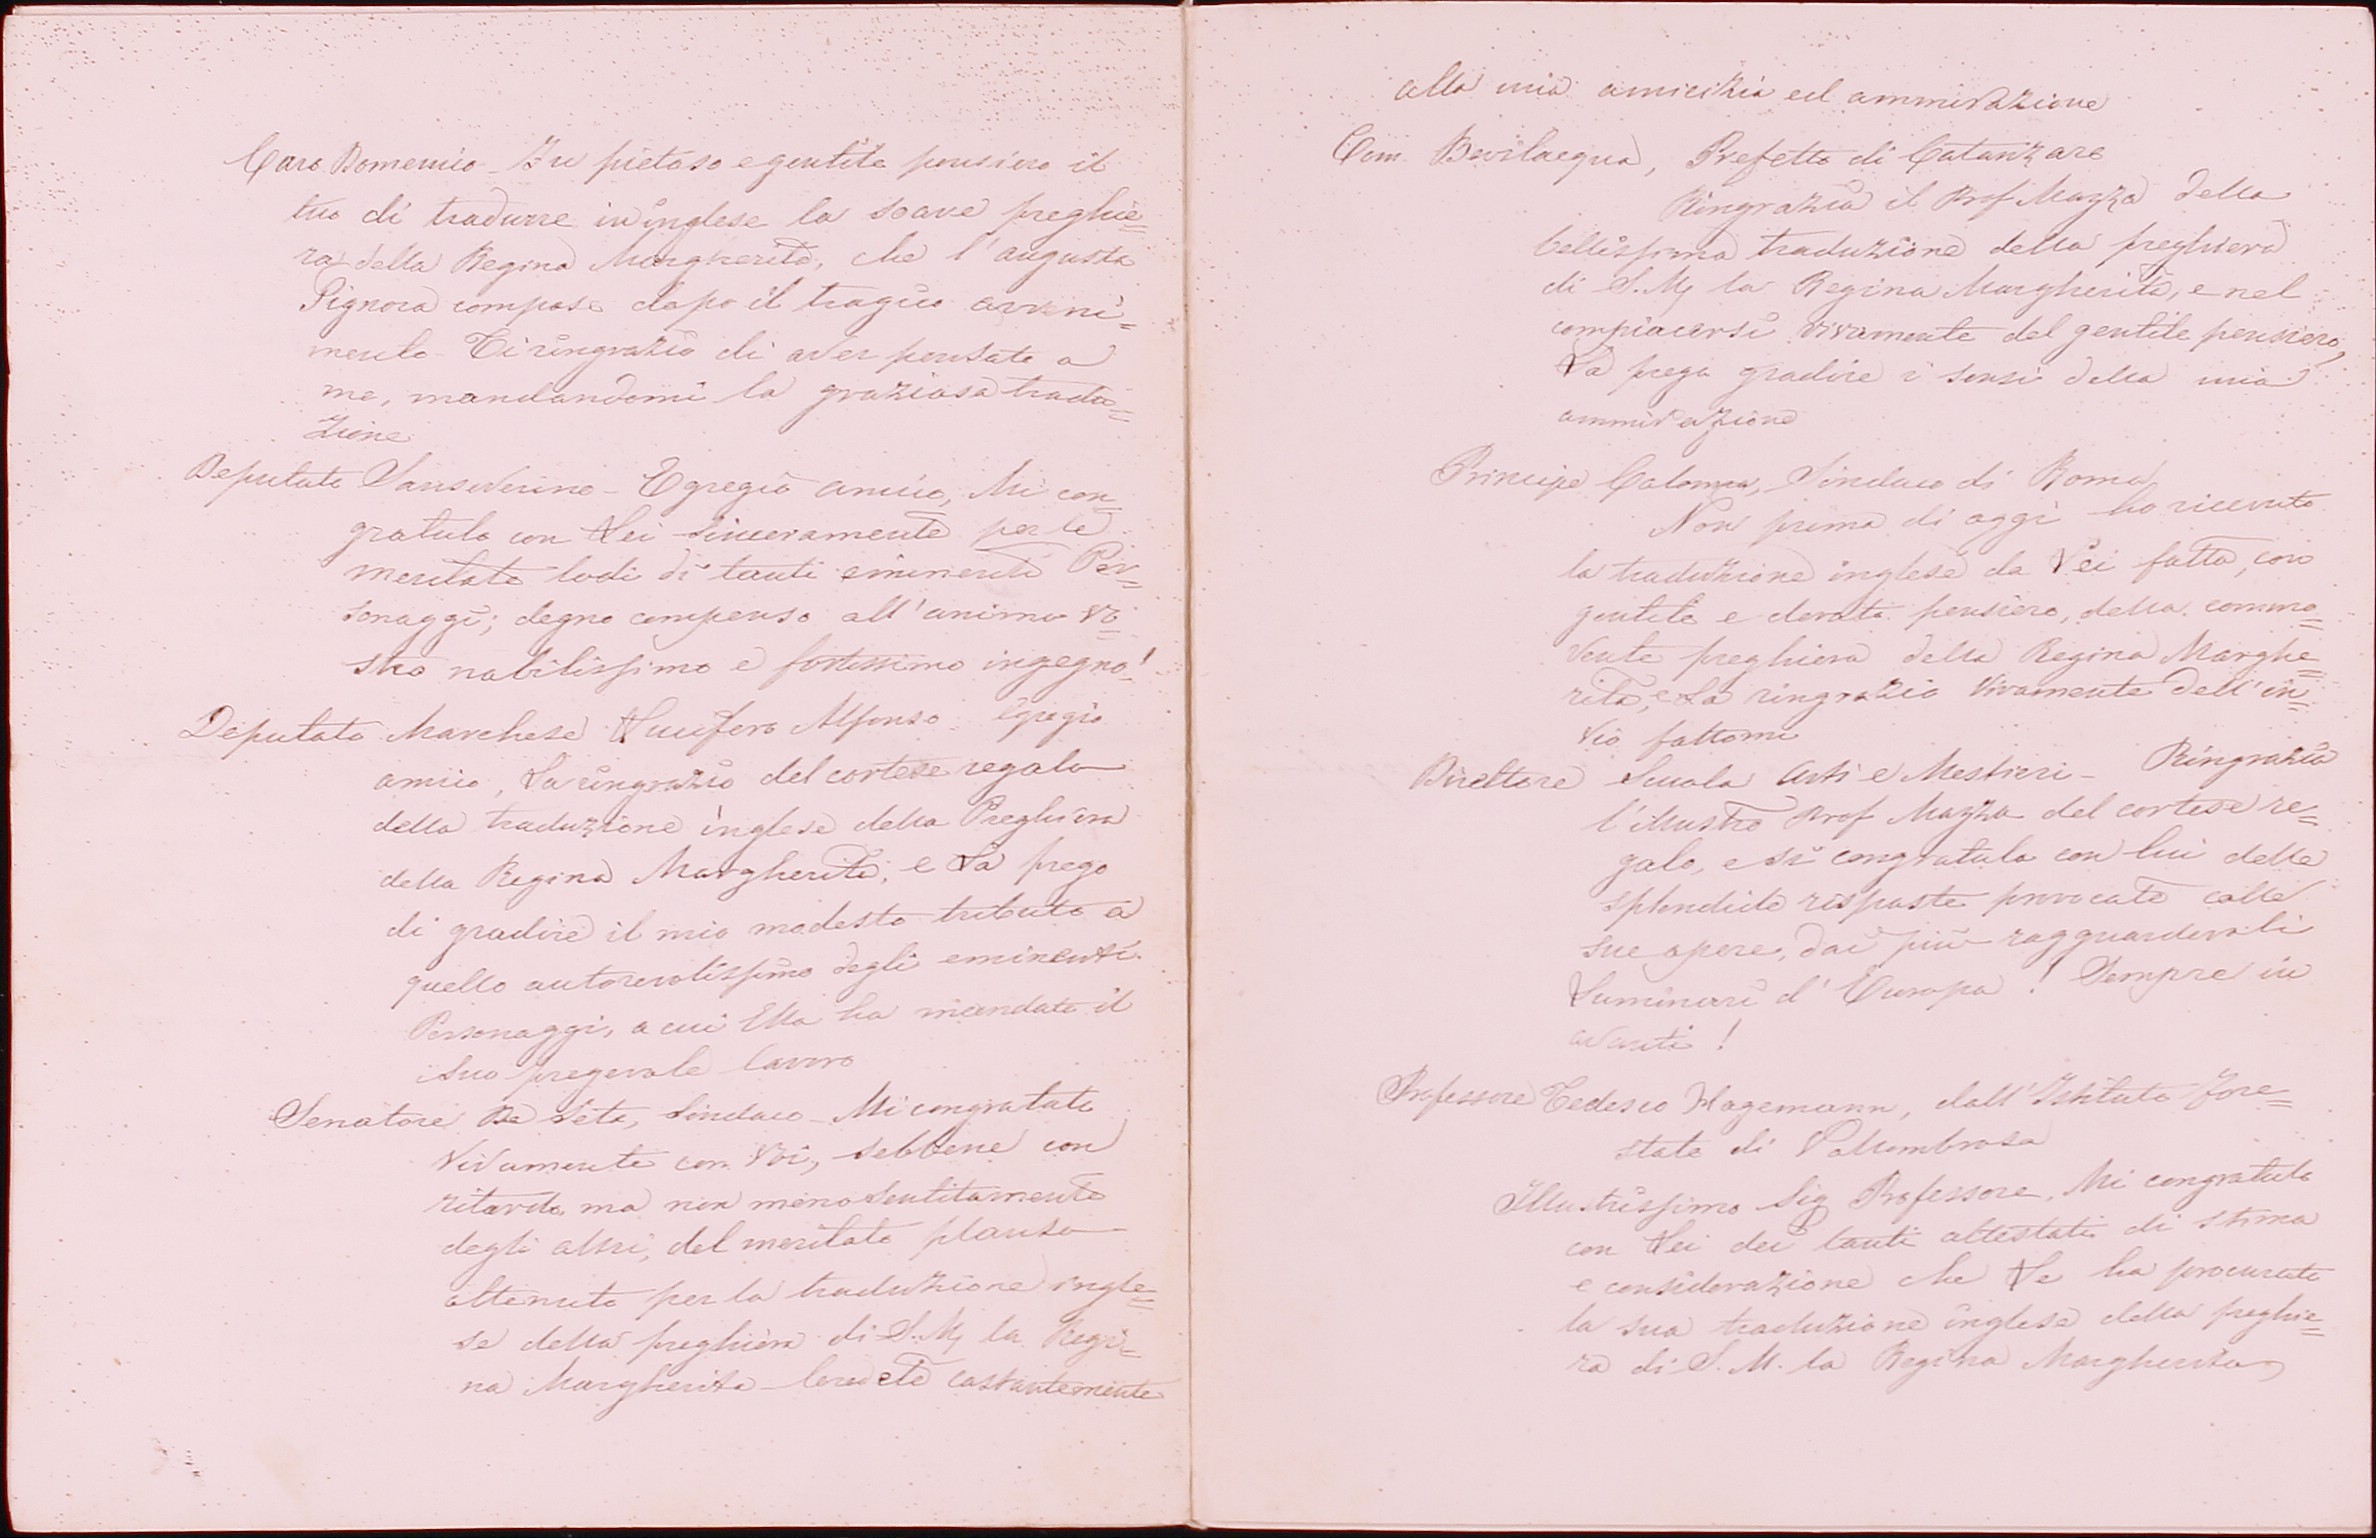 Caro Domenico - Fu pietoso e gentile pensiero il
tuo di tradurre in inglese la soave preghie=
ra della Regina Margherita, che l'augusta
Signora compose dopo il tragico avveni=
mento - Ti ringrazio di aver pensato a
me, mandandomi la graziosa tradu=
zione
Deputato Sanseverino - Egregio amico, Mi con=
gratulo con Lei sinceramente per le
meritate lodi di tanti eminenti Per=
sonaggi; degno compenso all'animo Vo=
stro nobilissimo e fortissimo ingegno!
Deputato Marchese Lucifero Alfonso - Egregio
amico, La ringrazio del cortese regalo
della traduzione inglese della Preghiera
della Regina Margherita; e La prego
di gradire il mio modesto tributo a
quello autorevolissimo degli eminenti
Personaggi, a cui Ella ha mandato il
Suo pregevole lavoro
Senatore De Seta, Sindaco - Mi congratulo
vivamente con Voi, sebbene con
ritardo ma non meno sentitamente
degli altri, del meritato plauso
ottenuto per la traduzione ingle=
se della preghiera di S. M. la Regi=
na Margherita - Credete costantemente
alla mia amicizia ed ammirazione
Com. Bevilacqua, Prefetto di Catanzaro
Ringrazia il Prof Mazza della
bellissima traduzione della preghiera
di S. M. la Regina Margherita, e nel
compiacersi vivamente del gentile pensiero,
La prega gradire i sensi della mia
ammirazione
Principe Colonna, Sindaco di Roma
Non prima di oggi ho ricevuto
la traduzione inglese da Lei fatta, con
gentile e devoto pensiero, della commo=
vente preghiera della Regina Marghe=
rita, e La ringrazio vivamente dell'in=
vio fattomi
Direttore Scuola Arti e Mestieri - Ringrazia
l'illustre Prof Mazza del cortese re=
galo, e si congratula con lui delle
splendide risposte provocate colle
sue opere, dai più ragguardevoli
Luminari d'Europa! Sempre in
avanti!
Professore Tedesco Hagemann, dall'Istituto Fore=
stale di Vallombrosa
Illustrissimo Sig Professore, Mi congratulo
con Lei dei tanti attestati di stima
e considerazione che Le ha procurato
la sua traduzione inglese della preghie=
ra di S. M. la Regina Margherita